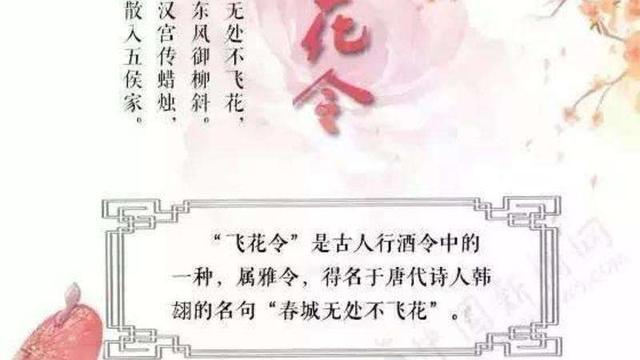 花令
无处不飞花，
东风御柳斜。
汉宫传蜡烛，
散入五侯家。
“飞花令”是古人行酒令中的
一种，属雅令，得名于唐代诗人韩
翃的名句“春城无处不飞花”。